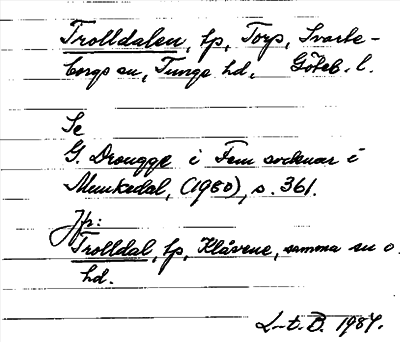 Trolldalen, lp, Torp, Svarte-
borgs sn, Tunge hd, Göteb. l.
Se
G. Drougge i Fem socknar i
Munkedal, (1980), s. 361.
Jfr:
Trolldal, lp, Klåvene, samma sn o.
hd.
L-t. D. 1987.